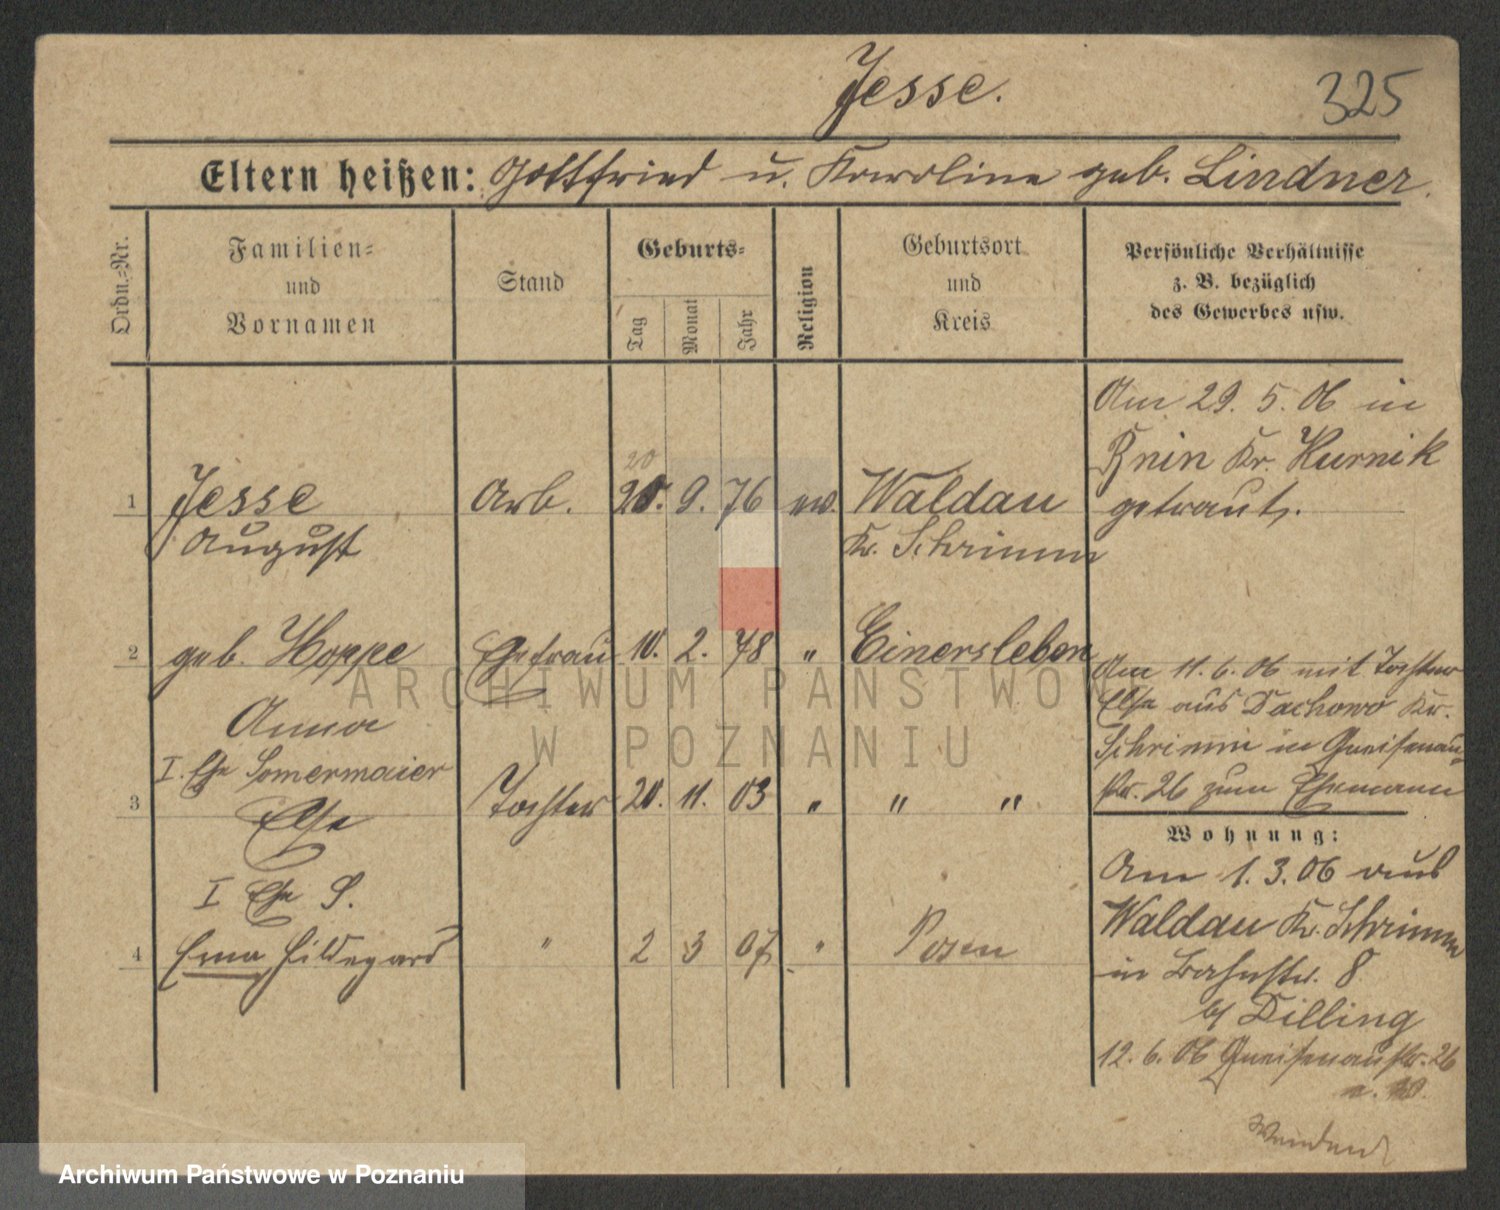 Jesse.
325
Eltern heißen: Gottfried u. Karoline geb. Lindner.
Ordn.-Nr.
Familien-
und
Vornamen
Stand
Geburts-
Tag
Monat
Jahr
Religion
Geburtsort
und
Kreis
Persönliche Verhältnisse
z. B. bezüglich
des Gewerbes usw.
Am 29. 5. 06 in
Bnin Kr. Kurnik
getraut.
20
1 Jesse Arb. 20. 9. 76 ev. Waldau
August Kr. Schrimm
2 geb. Hoppe Ehefrau 10. 2. 78 " Einersleben
Anna
I. Ehe Somermaier
3 Else Tochter 20. 11. 03 " " "
I Ehe S.
4 Erna Hildegard " 2 3 07 " Posen
Am 11. 6. 06 mit Tochter
Else aus Dachowo Kr.
Schrimm in Gneisenau-
str. 26 zum Ehemann
Wohnung:
Am 1. 3. 06 aus
Waldau Kr. Schrimm
in Bahnstr. 8
b/ Dilling
12. 6. 06 Gneisenaustr. 26
Wenden
ARCHIWUM PAŃSTWOW
W POZNANIU
Archiwum Państwowe w Poznaniu